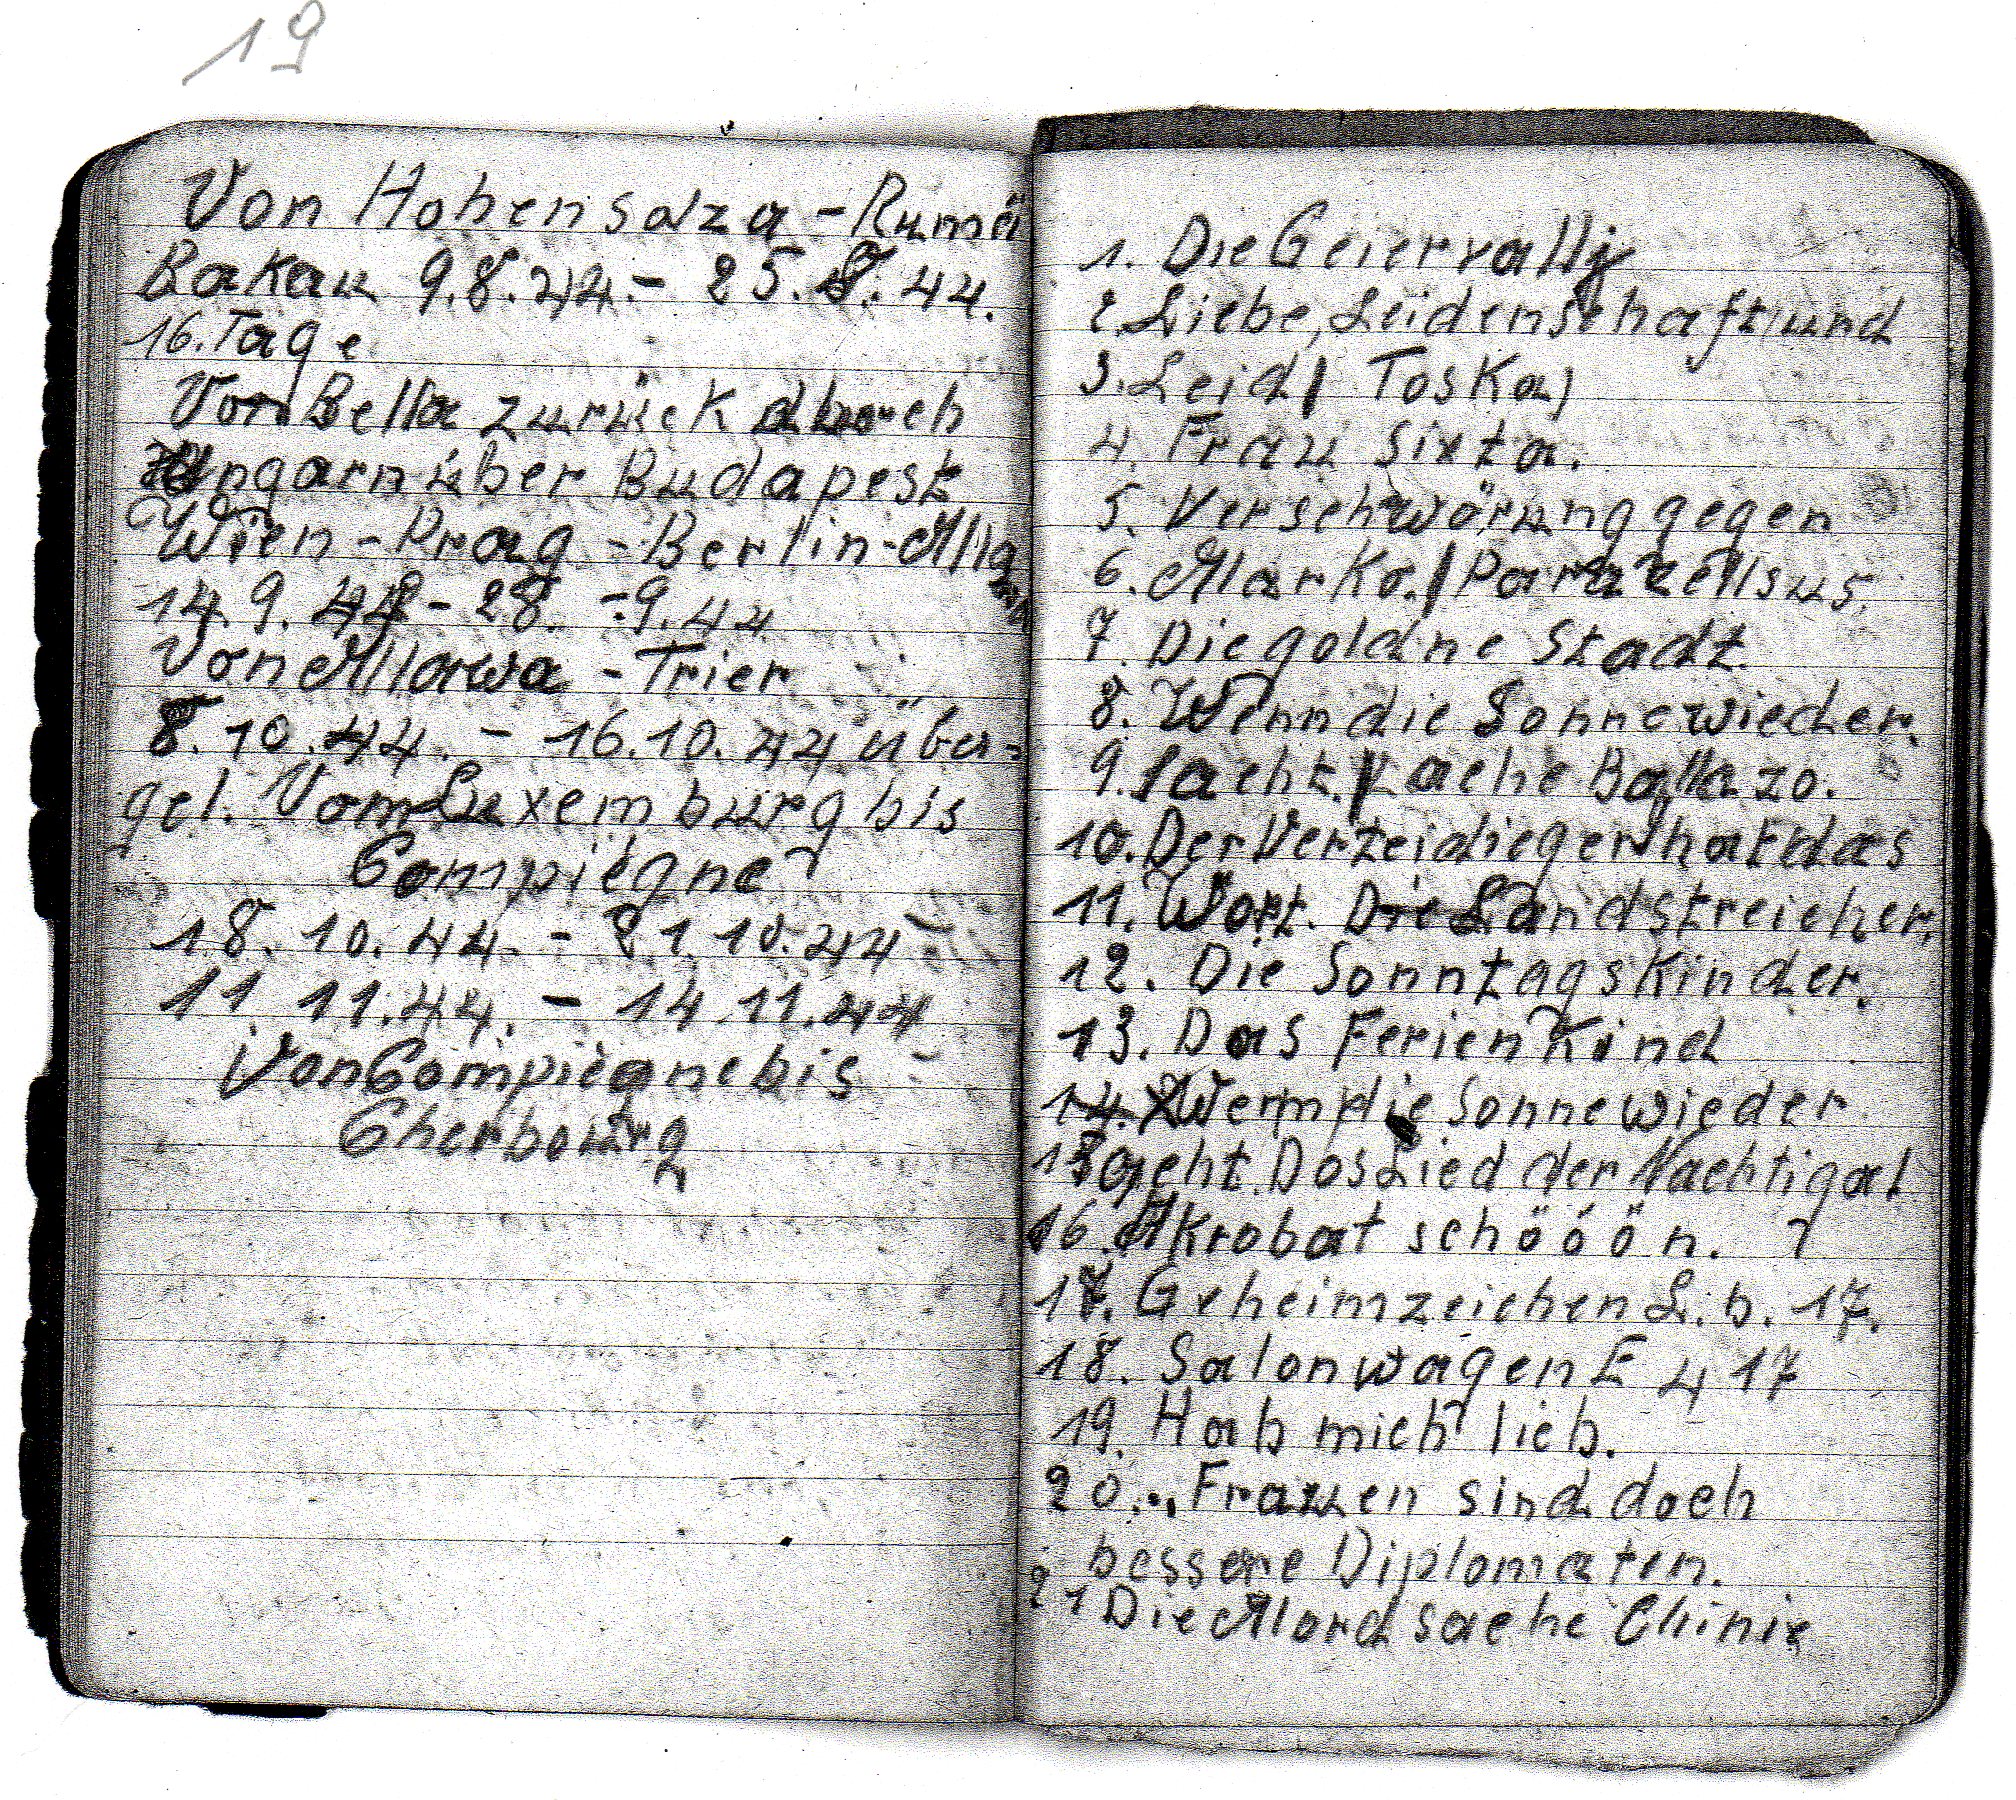 19
Von Hohensalza - Rumä
Bakau 9.8.44. - 25.8.44.
16. Tage
Von Bella zurück durch
Ungarn über Budapest
Wien - Prag - Berlin - Mla
14.9.44 - 28. - 9.44
Von Mlawa - Trier
8.10.44. - 16.10.44 über-
gel. Vom Luxemburg bis
Compiègne
18. 10. 44. - 21.10.44
11 11.44. - 14.11.44
Von Compiègne bis
Cherbourg
1. Die Geiervally
2. Liebe, Leidenschaft und
3. Leid / Toska)
4. Frau Sixta.
5. Verschwörung gegen
6. Marko. / Parazellsus.
7. Die goldne Stadt.
8. Wenn die Sonne wieder.
9. lacht. / Lache Bajazzo.
10. Der Verteidieger hat das
11. Wort. Die Landstreicher.
12. Die Sonntagskinder.
13. Das Ferienkind
14. Wenn die Sonne wieder
15 geht. Das Lied der Nachtigal
16. Akrobat schööön.
17. Geheimzeichen L.b. 17.
18. Salonwagen E 417
19. Hab mich lieb.
20... Frauen sind doch
bessere Diplomaten.
21 Die Mordsache